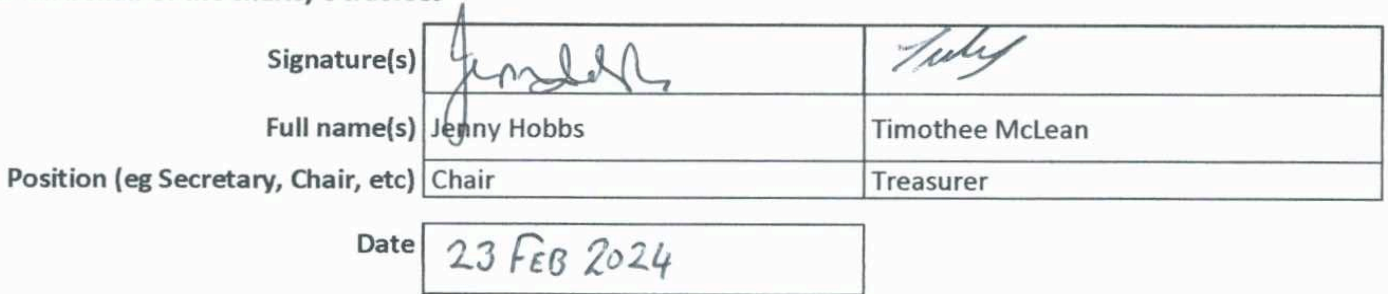 Signature(s)
Full name(s) Jenny Hobbs Timothee McLean
Position (eg Secretary, Chair, etc) Chair Treasurer
Date 23 FEB 2024